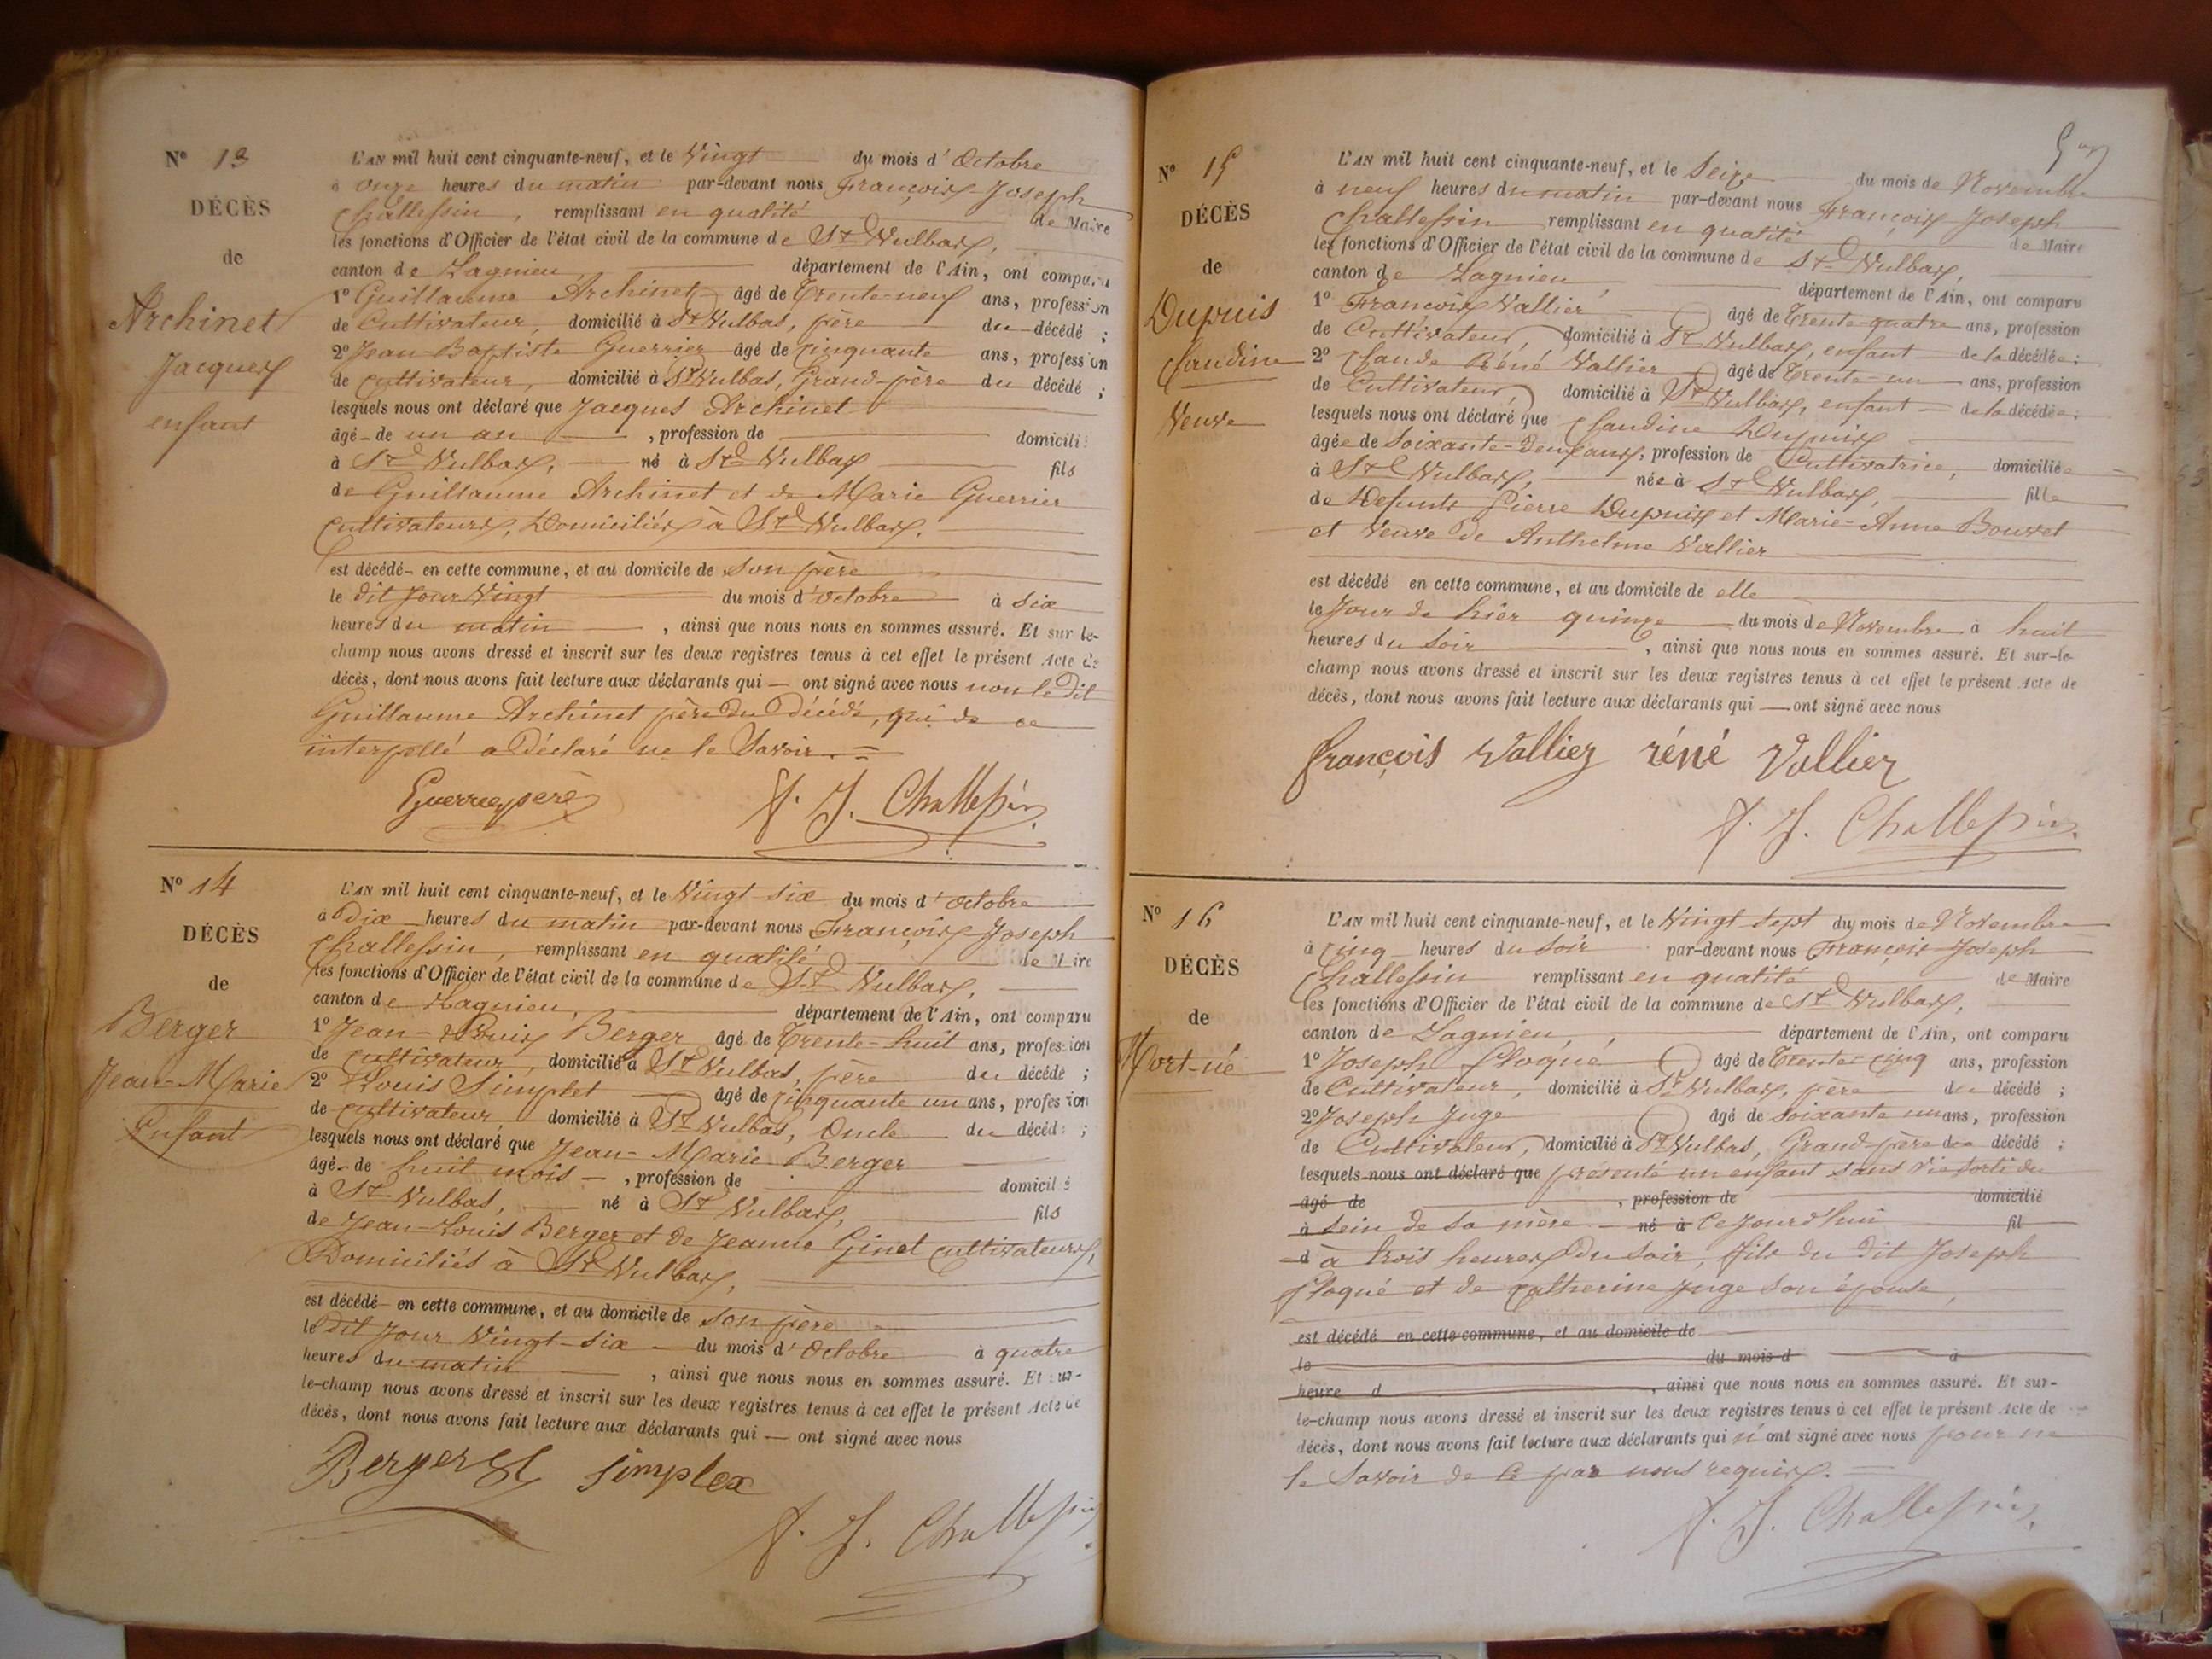 Nº 13
DÉCÈS
de
Archinet
Jacques
enfant
L'AN mil huit cent cinquante-neuf, et le Vingt du mois d'Octobre
à onze heures du matin par-devant nous François Joseph
Challessin, remplissant en qualité de Maire
les fonctions d'Officier de l'état civil de la commune de St Vulbas,
canton de Lagnieu, département de l'Ain, ont comparu
1º Guillaume Archinet âgé de Trente-neuf ans, profession
de Cultivateur, domicilié à St Vulbas, père du décédé ;
2º Jean-Baptiste Guerrier âgé de Cinquante ans, profession
de Cultivateur, domicilié à St Vulbas, Grand-père du décédé ;
lesquels nous ont déclaré que Jacques Archinet
âgé de un an , profession de domicilié
à St Vulbas, né à St Vulbas fils
de Guillaume Archinet et de Marie Guerrier
Cultivateurs, Domiciliés à St Vulbas.
est décédé en cette commune, et au domicile de son père
le dit jour Vingt du mois d'octobre à six
heures du matin , ainsi que nous nous en sommes assuré. Et sur le-
champ nous avons dressé et inscrit sur les deux registres tenus à cet effet le présent Acte de
décès, dont nous avons fait lecture aux déclarants qui — ont signé avec nous non le Dit
Guillaume Archinet père du Décédé, qui de ce
interpellé a Déclaré ne le Savoir. =
Guerrier père
F. J. Challessin
Nº 14
DÉCÈS
de
Berger
Jean-Marie
Enfant
L'AN mil huit cent cinquante-neuf, et le Vingt-six du mois d'octobre
à Dix heures du matin par-devant nous François Joseph
Challessin, remplissant en qualité de Maire
les fonctions d'Officier de l'état civil de la commune de St Vulbas,
canton de Lagnieu, département de l'Ain, ont comparu
1º Jean-Louis Berger âgé de Trente-huit ans, profession
de cultivateur, domicilié à St Vulbas, père du décédé ;
2º Louis Simplet âgé de Cinquante un ans, profession
de Cultivateur, domicilié à St Vulbas, Oncle du décédé ;
lesquels nous ont déclaré que Jean-Marie Berger
âgé de huit mois — , profession de domicilié
à St Vulbas, né à St Vulbas, fils
de Jean-Louis Berger et de Jeanne Ginet Cultivateurs,
Domiciliés à St Vulbas,
est décédé en cette commune, et au domicile de son père
le dit jour Vingt-six du mois d'Octobre à quatre
heures du matin , ainsi que nous nous en sommes assuré. Et sur-
le-champ nous avons dressé et inscrit sur les deux registres tenus à cet effet le présent Acte de
décès, dont nous avons fait lecture aux déclarants qui — ont signé avec nous
Berger simplex
F. J. Challessin
Nº 15
DÉCÈS
de
Dupuis
Claudine
Veuve
L'AN mil huit cent cinquante-neuf, et le Seize du mois de Novembre
à neuf heures du matin par-devant nous François Joseph
Challessin remplissant en qualité de Maire
les fonctions d'Officier de l'état civil de la commune de St Vulbas,
canton de Lagnieu, département de l'Ain, ont comparu
1º François Vallier âgé de Trente-quatre ans, profession
de Cultivateur, domicilié à St Vulbas, enfant de la décédée ;
2º Claude Réné Vallier âgé de Trente-un ans, profession
de Cultivateur, domicilié à St Vulbas, enfant de la décédée ;
lesquels nous ont déclaré que Claudine Dupuis
âgée de Soixante-Deux ans, profession de Cultivatrice, domiciliée
à St Vulbas, née à St Vulbas, fille
de Defunts Pierre Dupuis et Marie-Anne Bouvet
et Veuve de Anthelme Vallier
est décédé en cette commune, et au domicile de elle
le Jour de hier quinze du mois de Novembre à huit
heures du Soir , ainsi que nous nous en sommes assuré. Et sur-le-
champ nous avons dressé et inscrit sur les deux registres tenus à cet effet le présent Acte de
décès, dont nous avons fait lecture aux déclarants qui — ont signé avec nous
françois Vallier réné Vallier
F. J. Challessin
Nº 16
DÉCÈS
de
Mort-né
L'AN mil huit cent cinquante-neuf, et le Vingt-sept du mois de Novembre
à Cinq heures du Soir par-devant nous François Joseph
Challessin remplissant en qualité de Maire
les fonctions d'Officier de l'état civil de la commune de St Vulbas,
canton de Lagnieu, département de l'Ain, ont comparu
1º Joseph Floqué âgé de Trente-cinq ans, profession
de Cultivateur, domicilié à St Vulbas, père du décédé ;
2º Joseph Juge âgé de Soixante un ans, profession
de Cultivateur, domicilié à St Vulbas, Grand-père du décédé ;
lesquels nous ont déclaré que présenté un enfant sans vie sorti du
âgé de , profession de domicilié
à sein de sa mère né à Cejourd'hui fil
d à trois heures du soir, fils du dit Joseph
Floqué et de Catherine Juge son épouse,
est décédé en cette commune, et au domicile de
le du mois d à
heure d , ainsi que nous nous en sommes assuré. Et sur-
le-champ nous avons dressé et inscrit sur les deux registres tenus à cet effet le présent Acte de
décès, dont nous avons fait lecture aux déclarants qui n'ont signé avec nous pour ne
le Savoir de ce par nous requis.
F. J. Challessin